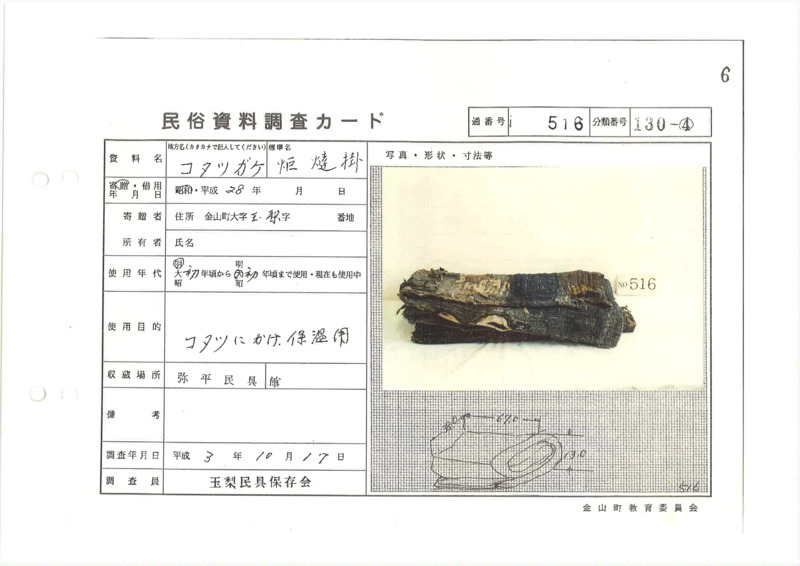 6
民俗資料調査カード
通番号 516 分類番号 130-④
資料名 地方名(カタカナで記入してください) コタツガケ 標準名 炬燵掛
写真・形状・寸法等
寄贈・借用年月日 昭和・平成 28年 月 日
寄贈者 住所 金山町大字玉梨字 番地
所有者 氏名
使用年代 明大昭 初年頃から 明大昭 初年頃まで使用・現在も使用中
NO 516
使用目的 コタツにかけ、保温用
収蔵場所 弥平民具館
備考
67.0
13.0
調査年月日 平成 3年 10月 17日
調査員 玉梨民具保存会
516
金山町教育委員会